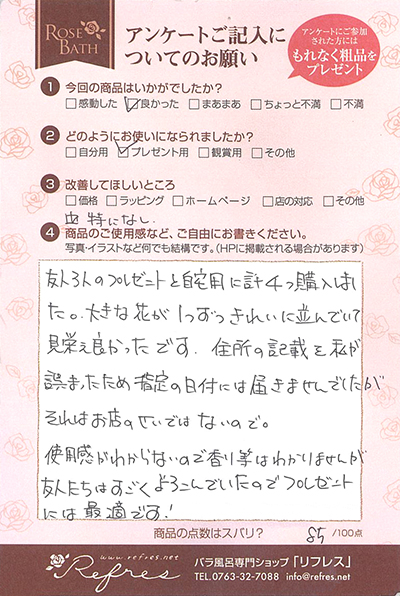 ROSE BATH
アンケートご記入についてのお願い
アンケートにご参加された方には
もれなく粗品をプレゼント
1 今回の商品はいかがでしたか?
□感動した ☑良かった □まあまあ □ちょっと不満 □不満
2 どのようにお使いになられましたか?
□自分用 ☑プレゼント用 □観賞用 □その他
3 改善してほしいところ
□価格 □ラッピング □ホームページ □店の対応 □その他
特になし
4 商品のご使用感など、ご自由にお書きください。
写真・イラストなど何でも結構です。(HPに掲載される場合があります)
友人3人のプレゼントと自宅用に計4つ購入しまし
た。大きな花が1つずつきれいに並んでいて
見栄え良かったです。住所の記載を私が
誤まったため指定の日付には届きませんでしたが
それはお店のせいではないので。
使用感がわからないので香り等はわかりませんが
友人たちはすごくよろこんでいたのでプレゼント
には最適です!
商品の点数はズバリ? 85 /100点
www.refres.net
Refres
バラ風呂専門ショップ「リフレス」
TEL.0763-32-7088 info@refres.net